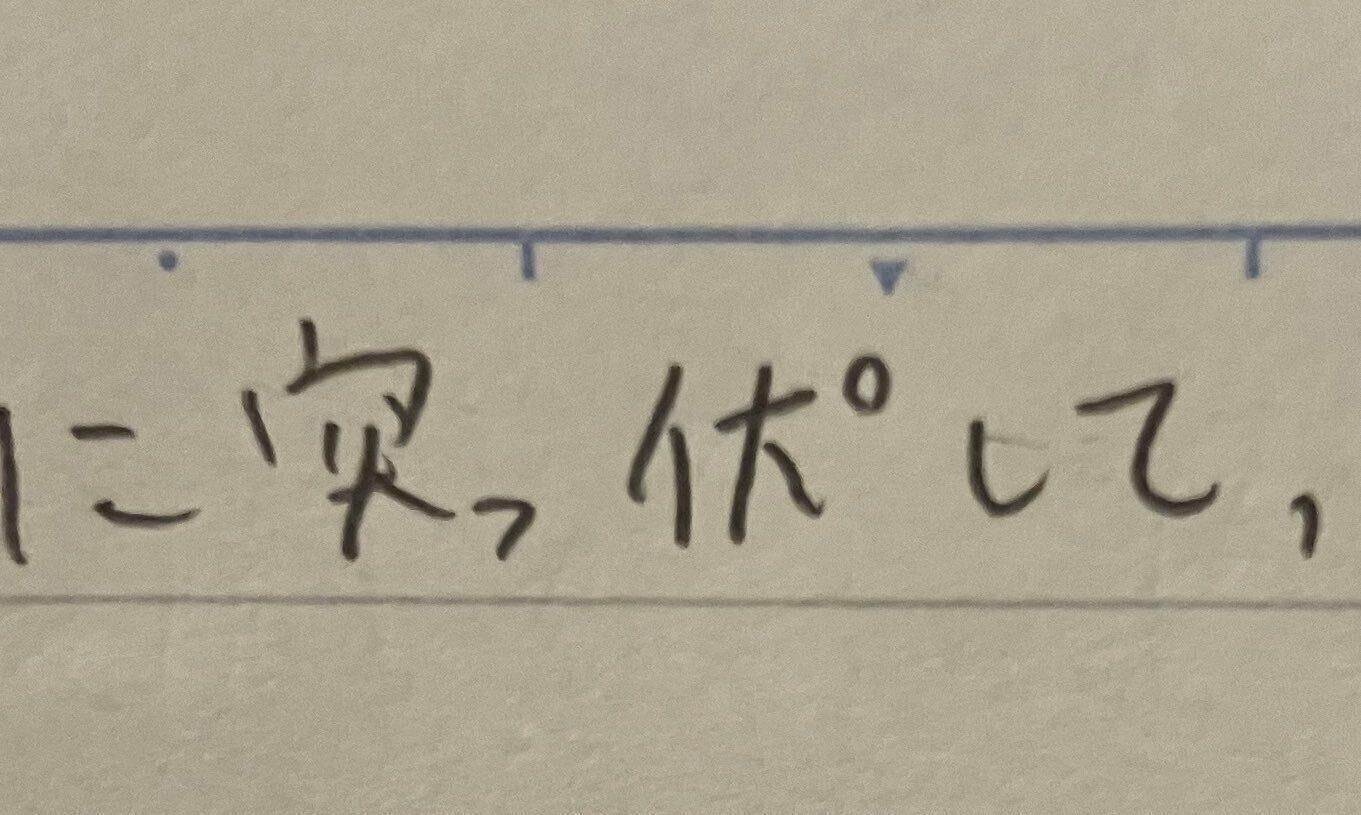 に突っ伏して,